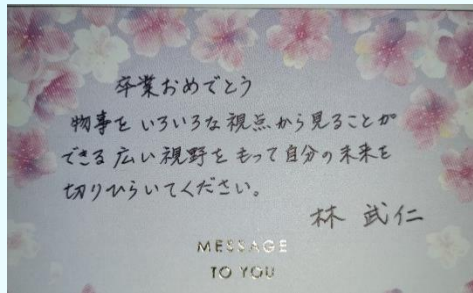 卒業おめでとう
物事をいろいろな視点から見ることが
できる広い視野をもって自分の未来を
切りひらいてください。
林 武仁
MESSAGE
TO YOU